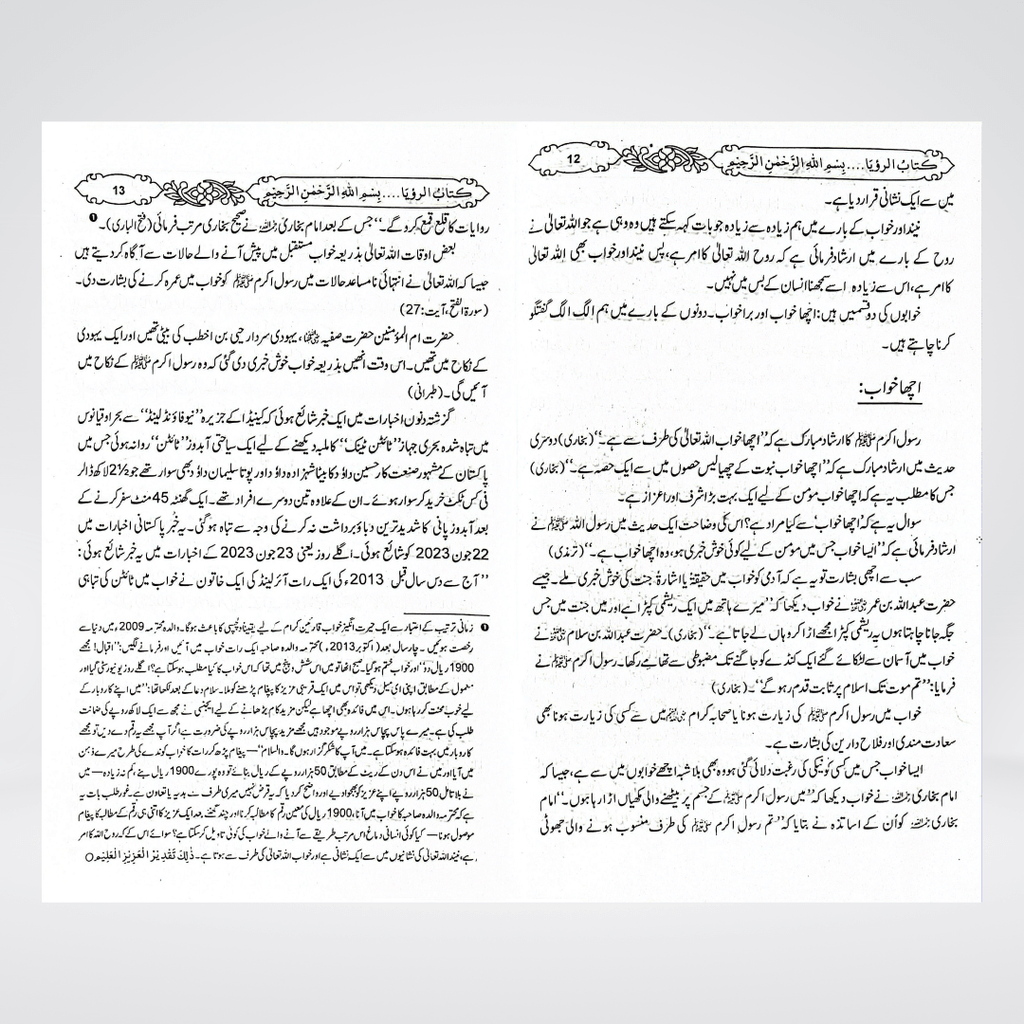 كتاب الرؤيا.... بِسْمِ اللهِ الرَّحْمٰنِ الرَّحِيْمِ 12
میں سے ایک نشانی قرار دیا ہے۔
نیند اور خواب کے بارے میں ہم زیادہ سے زیادہ جو بات کہہ سکتے ہیں وہ وہی ہے جو اللہ تعالیٰ نے
روح کے بارے میں ارشاد فرمائی ہے کہ روح اللہ تعالیٰ کا امر ہے، پس نیند اور خواب بھی اللہ تعالیٰ
کا امر ہے، اس سے زیادہ اسے سمجھنا انسان کے بس میں نہیں۔
خوابوں کی دو قسمیں ہیں: اچھا خواب اور برا خواب۔ دونوں کے بارے میں ہم الگ الگ گفتگو
کرنا چاہتے ہیں۔
اچھا خواب:
رسول اکرم ﷺ کا ارشاد مبارک ہے کہ ’’اچھا خواب اللہ تعالیٰ کی طرف سے ہے۔‘‘ (بخاری) دوسری
حدیث میں ارشاد مبارک ہے کہ ’’اچھا خواب نبوت کے چھیالیس حصوں میں سے ایک حصہ ہے۔‘‘ (بخاری)
جس کا مطلب یہ ہے کہ اچھا خواب مومن کے لیے ایک بہت بڑا شرف اور اعزاز ہے۔
سوال یہ ہے کہ اچھا خواب سے کیا مراد ہے؟ اس کی وضاحت ایک حدیث میں رسول اللہ ﷺ نے
ارشاد فرمائی ہے کہ ’’ایسا خواب جس میں مومن کے لیے کوئی خوش خبری ہو، وہ اچھا خواب ہے۔‘‘ (ترمذی)
سب سے اچھی بشارت تو یہ ہے کہ آدمی کو خواب میں حقیقۃً یا اشارۃً جنت کی خوش خبری ملے۔ جیسے
حضرت عبداللہ بن عمر ؓ نے خواب دیکھا کہ ’’میرے ہاتھ میں ایک ریشمی کپڑا ہے اور میں جنت میں جس
جگہ جانا چاہتا ہوں یہ ریشمی کپڑا مجھے اڑا کر وہاں لے جاتا ہے۔‘‘ (بخاری)۔ حضرت عبداللہ بن سلام ؓ نے
خواب میں آسمان سے لٹکائے گئے ایک کنڈے کو جاگنے تک مضبوطی سے تھامے رکھا۔ رسول اکرم ﷺ نے
فرمایا: ’’تم موت تک اسلام پر ثابت قدم رہو گے‘‘۔ (بخاری)
خواب میں رسول اکرم ﷺ کی زیارت ہونا یا صحابہ کرام ؓ میں سے کسی کی زیارت ہونا بھی
سعادت مندی اور فلاح دارین کی بشارت ہے۔
ایسا خواب جس میں کسی کو نیکی کی رغبت دلائی گئی ہو وہ بھی بلاشبہ اچھے خوابوں میں سے ہے، جیسا کہ
امام بخاری ؒ نے خواب دیکھا کہ ’’میں رسول اکرم ﷺ کے جسم پر بیٹھنے والی مکھیاں اڑا رہا ہوں۔‘‘ امام
بخاری ؒ کو اُن کے اساتذہ نے بتایا کہ ’’تم رسول اکرم ﷺ کی طرف منسوب ہونے والی جھوٹی
كتاب الرؤيا.... بِسْمِ اللهِ الرَّحْمٰنِ الرَّحِيْمِ 13
روایات کا قلع قمع کرو گے۔‘‘ جس کے بعد امام بخاری ؒ نے صحیح بخاری مرتب فرمائی (فتح الباری)۔ ❶
بعض اوقات اللہ تعالیٰ بذریعہ خواب مستقبل میں پیش آنے والے حالات سے آگاہ کر دیتے ہیں
جیسا کہ اللہ تعالیٰ نے انتہائی نامساعد حالات میں رسول اکرم ﷺ کو خواب میں عمرہ کرنے کی بشارت دی۔
(سورۃ الفتح، آیت:27)
حضرت ام المؤمنین حضرت صفیہ ؓ، یہودی سردار حیی بن اخطب کی بیٹی تھیں اور ایک یہودی
کے نکاح میں تھیں۔ اس وقت انھیں بذریعہ خواب خوش خبری دی گئی کہ وہ رسول اکرم ﷺ کے نکاح میں
آئیں گی۔ (طبرانی)
گزشتہ دنوں اخبارات میں ایک خبر شائع ہوئی کہ کینیڈا کے جزیرہ ’’نیو فاؤنڈ لینڈ‘‘ سے بحر اوقیانوس
میں تباہ شدہ بحری جہاز ’’ٹائٹن ٹینک‘‘ کا ملبہ دیکھنے کے لیے ایک سیاحتی آبدوز ’’ٹائٹن‘‘ روانہ ہوئی جس میں
پاکستان کے مشہور صنعت کار حسین داؤد کا بیٹا شہزادہ داؤد اور پوتا سلیمان داؤد بھی سوار تھے جو 2½ لاکھ ڈالر
فی کس ٹکٹ خرید کر سوار ہوئے۔ ان کے علاوہ تین دوسرے افراد تھے۔ ایک گھنٹہ 45 منٹ سفر کرنے کے
بعد آبدوز پانی کا شدید ترین دباؤ برداشت نہ کرنے کی وجہ سے تباہ ہو گئی۔ یہ خبر پاکستانی اخبارات میں
22 جون 2023 کو شائع ہوئی۔ اگلے روز یعنی 23 جون 2023 کے اخبارات میں یہ خبر شائع ہوئی:
’’آج سے دس سال قبل 2013ء کی ایک رات آئرلینڈ کی ایک خاتون نے خواب میں ٹائٹن کی تباہی
❶ زمانی ترتیب کے اعتبار سے ایک حیرت انگیز خواب قارئین کرام کے لیے یقیناً دلچسپی کا باعث ہوگا۔ والدہ محترمہ 2009ء میں دنیا سے
رخصت ہوئیں۔ چار سال بعد (اکتوبر 2013ء) محترمہ والدہ صاحبہ ایک رات خواب میں آئیں اور فرمانے لگیں: ’’اقبال! مجھے
1900 ریال دو‘‘ اور خواب ختم ہو گیا۔ صبح اٹھا تو میں اس شش و پنج میں تھا کہ اس خواب کا کیا مطلب ہو سکتا ہے؟ اگلے روز یونیورسٹی گیا اور
معمول کے مطابق اپنی ای میل دیکھی تو اس میں ایک قریبی عزیز کا پیغام پڑھنے کو ملا۔ سلام دعا کے بعد لکھا تھا: ’’میں اپنے کاروبار کے
لیے خوب محنت کر رہا ہوں۔ اس میں فائدہ بھی اچھا ہے لیکن مزید کام بڑھانے کے لیے ایجنسی نے مجھ سے ایک لاکھ روپے کی ضمانت
طلب کی ہے۔ میرے پاس پچاس ہزار روپے موجود ہیں مجھے مزید پچاس ہزار روپے کی ضرورت ہے اگر آپ مجھے یہ رقم دے دیں تو مجھے
کاروبار میں بہت فائدہ ہو سکتا ہے۔ میں آپ کا شکر گزار ہوں گا۔ والسلام‘‘ — پیغام پڑھ کر رات کا خواب کوندے کی طرح میرے ذہن
میں آیا اور میں نے اس دن کے ریٹ کے مطابق 50 ہزار روپے کے ریال بنائے تو وہ پورے 1900 ریال بنے، کم نہ زیادہ — میں
نے بلا تامل 50 ہزار روپے اپنے عزیز کو بھجوا دیے اور واضح کر دیا کہ یہ قرض نہیں میری طرف سے ہدیہ یا تعاون ہے۔ غور طلب بات یہ
ہے کہ محترمہ والدہ صاحبہ کا خواب میں آنا، 1900 ریال کی معین رقم کا مطالبہ کرنا اور چند گھنٹے بعد ایک عزیز کا اتنی ہی رقم کے مطالبہ کا پیغام
موصول ہونا — کیا کوئی انسانی دماغ اس مرتب طریقے سے آنے والے خواب کی کوئی تاویل کر سکتا ہے؟ سوائے اس کے کہ روح اللہ کا امر
ہے، نیند اللہ تعالیٰ کی نشانیوں میں سے ایک نشانی ہے اور خواب اللہ تعالیٰ کی طرف سے ہوتا ہے۔ ذٰلِكَ تَقْدِيْرُ الْعَزِيْزِ الْعَلِيْمِ ○